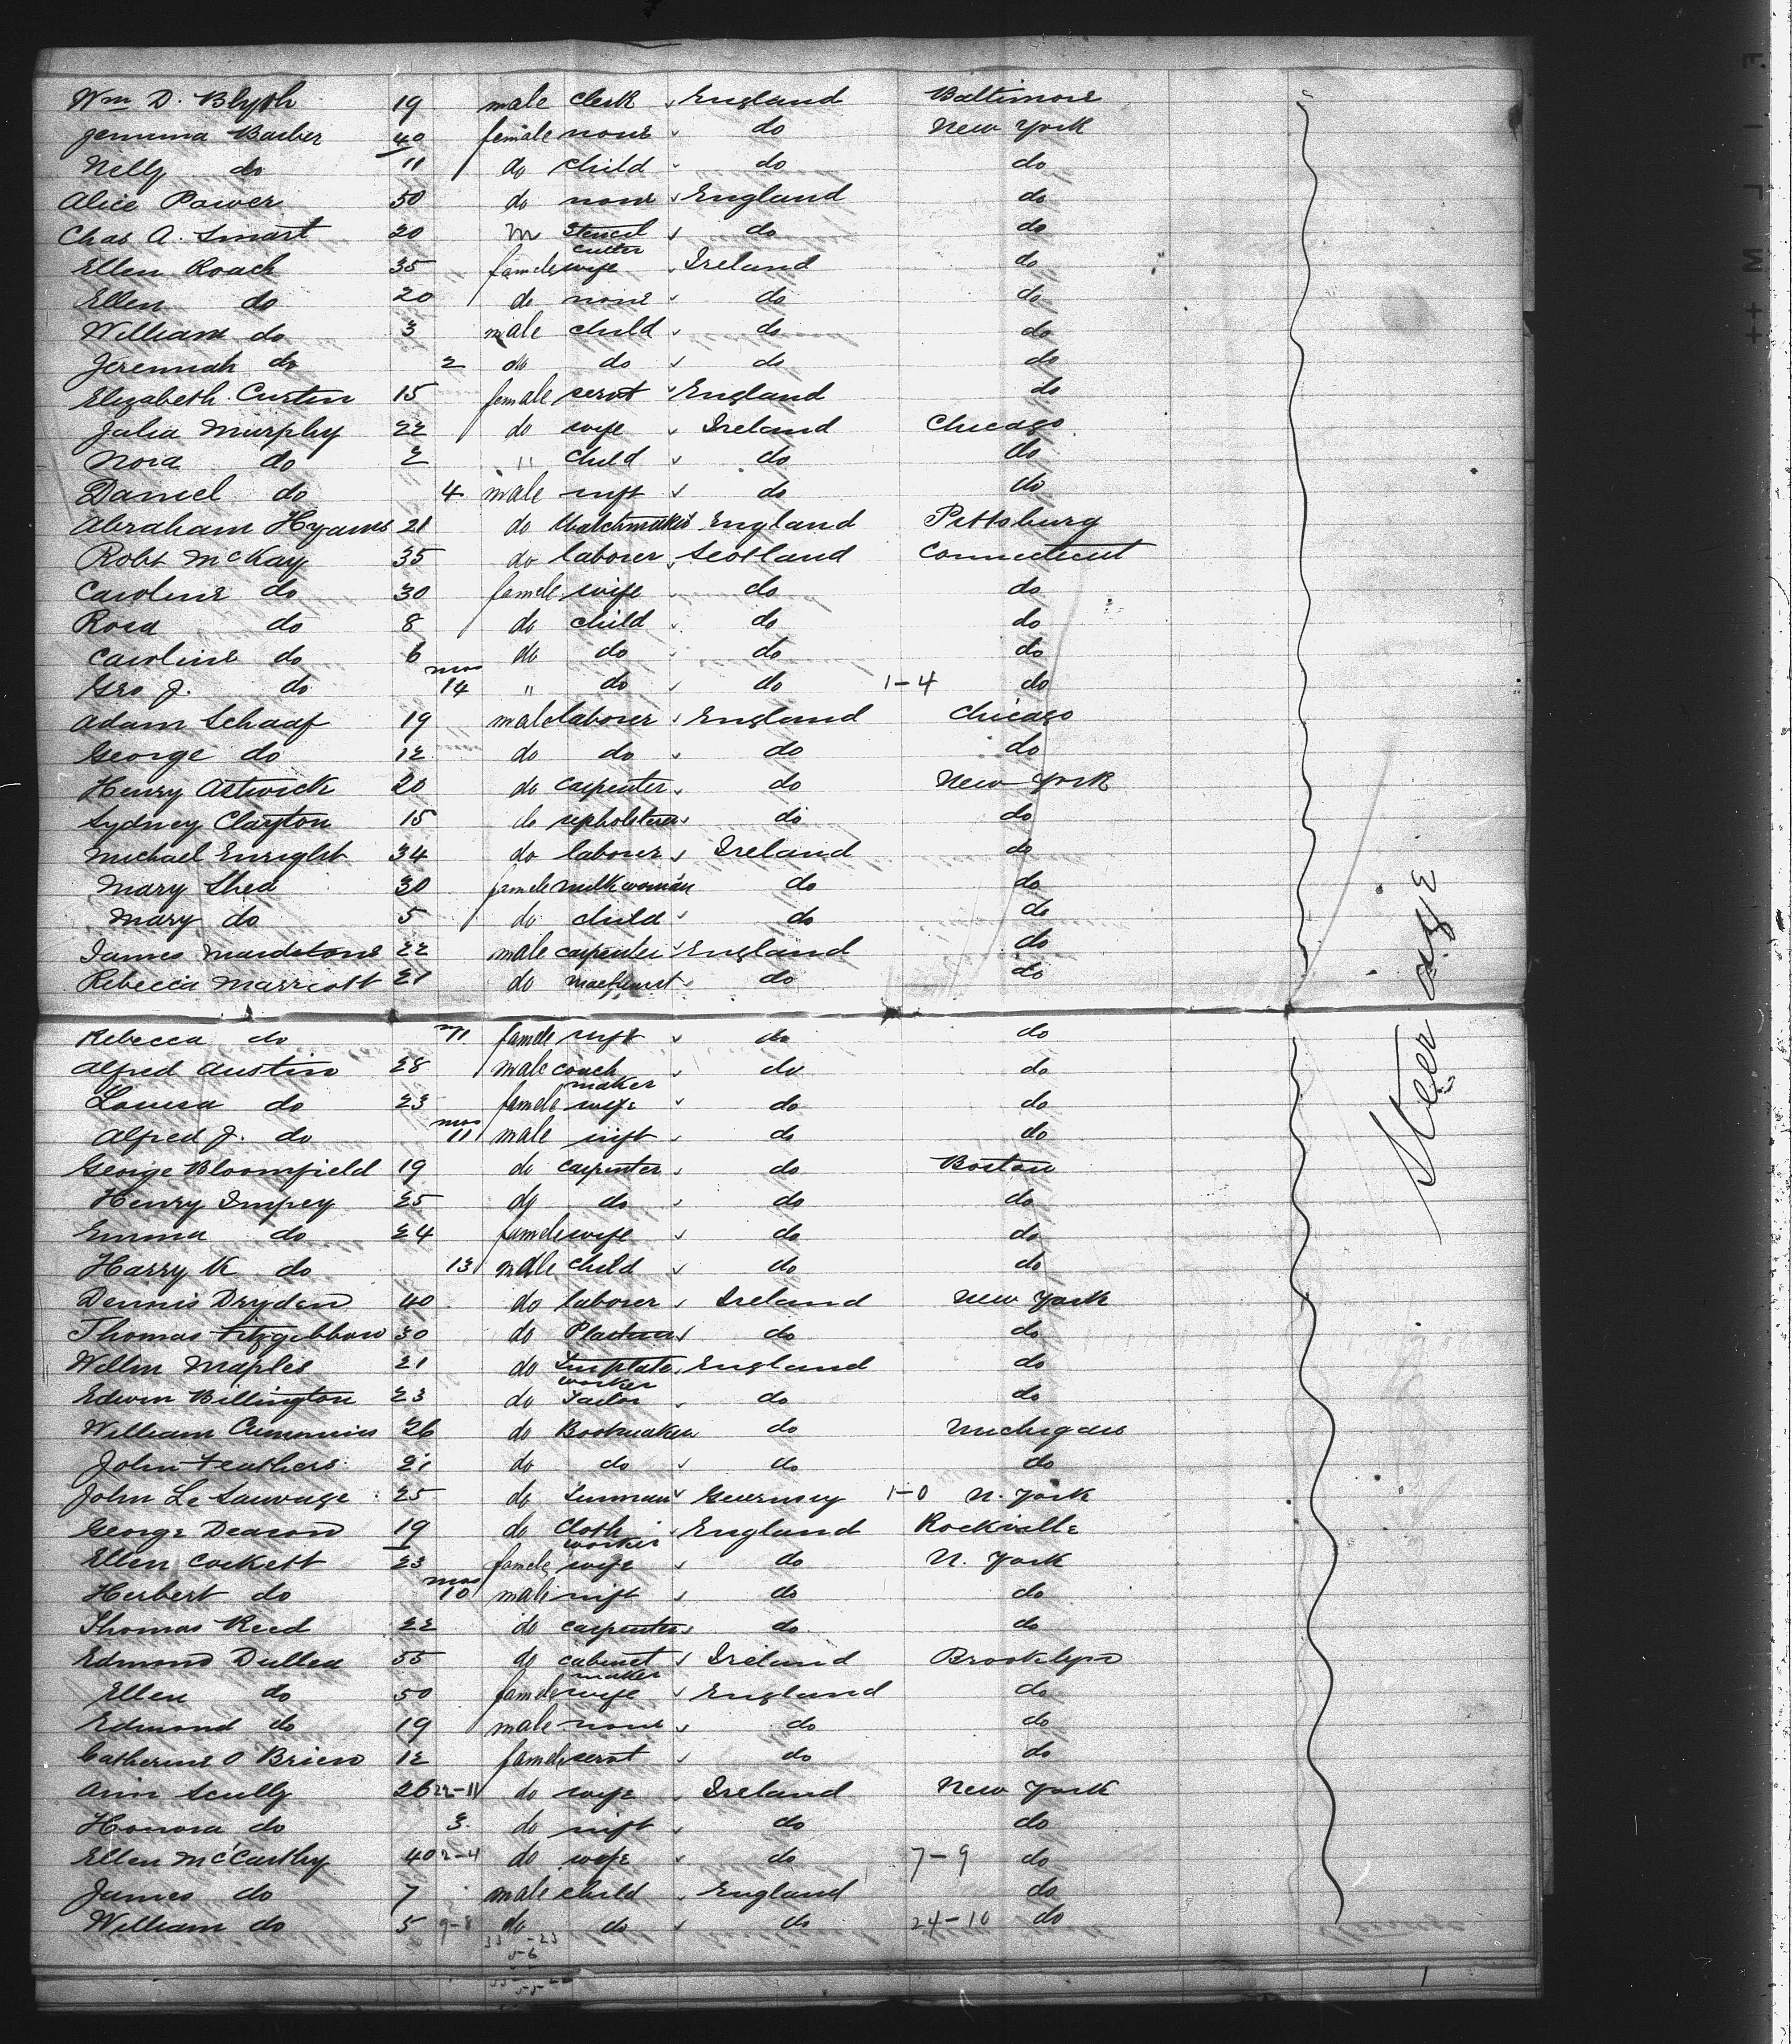 Wm D. Blyth 19 male clerk England Baltimore
Jemima Barber 40 female none do New York
Nelly do 11 do child do do
Alice Power 50 do none England do
Chas A. Smart 20 m Stencil cutter do do
Ellen Roach 35 famele wife Ireland do
Ellen do 20 do none do do
William do 3 male child do do
Jeremiah do 2 do do do do
Elizabeth Curtin 15 female servt England do
Julia Murphy 22 do wife Ireland Chicago
Nora do 2 " child do do
Daniel do 4 male inft do do
Abraham Hyams 21 do Watchmaker England Pittsburg
Robt McKay 35 do laborer Scotland Connecticut
Caroline do 30 famele wife do do
Rosa do 8 do child do do
Caroline do 6 do do do do
Geo J. do mos 14 " do do 1-4 do
Adam Schaaf 19 male laborer England Chicago
George do 12 do do do do
Henry Astwick 20 do carpenter do New York
Sydney Clayton 15 do upholsterer do do
Michael Enright 34 do laborer Ireland do
Mary Shea 30 famele milkwoman do do
Mary do 5 do child do do
James Maidstone 22 male carpenter England do
Rebecca Marriott 21 do do do
Rebecca do 11 famele inft do do
Alfred Austin 28 male coach maker do do
Louisa do 23 famele wife do do
Alfred J. do mos 11 male inft do do
George Bloomfield 19 do carpenter do Boston
Henry Impey 25 do do do do
Emma do 24 famele wife do do
Harry K do 13 male child do do
Dennis Dryden 40 do laborer Ireland New York
Thomas Fitzgibbon 30 do Plasterer do do
Willm Maples 21 do Tinplate worker England do
Edwin Billington 23 do Tailor do do
William Cummins 26 do Bootmaker do Michigan
John Feathers 21 do do do do
John Le Sauvage 25 do Tinman Guernsey 1-0 N. York
George Deacon 19 do Cloth worker England Rockville
Ellen Cockett 23 famele wife do N. York
Herbert do mos 10 male inft do do
Thomas Reed 22 do carpenter do do
Edmond Dullea 55 do cabinet maker Ireland Brooklyn
Ellen do 50 famele wife England do
Edmond do 19 male none do do
Catherine O Brien 12 famele servt do do
Ann Scully 26 22-11 do wife Ireland New York
Honora do 3 do inft do do
Ellen McCarthy 40 2-4 do wife do 7-9 do
James do 7 male child England do
William do 5 9-8 do do do 24-10 do
33-23
5-6
Steerage